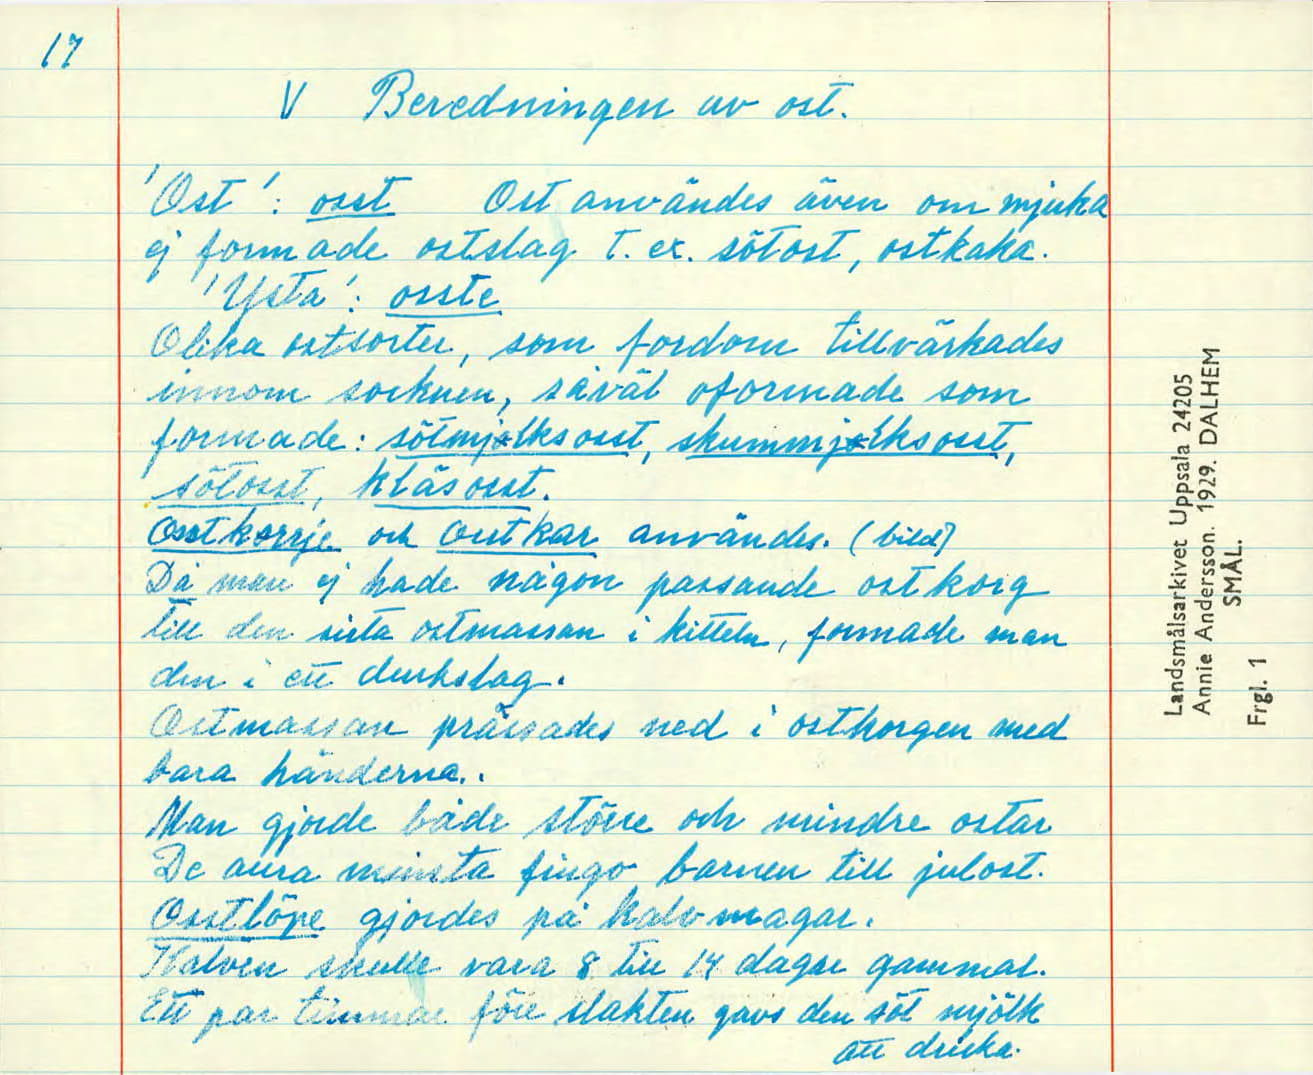 17
V Beredningen av ost.
'Ost': osst Ost användes även om mjuka
ej formade ostslag t. ex. sötost, ostkaka.
'Ysta': osste
Olika ostsorter, som fordom tillvärkades
innom socknen, såväl oformade som
formade: sötmjølksosst, skummjølksosst,
sötosst, kläsosst.
Osstkorrje och Ostkar användes. (bild)
Då man ej hade någon passande ostkorg
till den sista ostmassan i kitteln, formade man
den i ett durkslag.
Ostmassan prässades ned i ostkorgen med
bara händerna.
Man gjorde både större och mindre ostar
De allra minsta fingo barnen till julost.
Osstlöpe gjordes på kalvmagar.
Kalven skulle vara 8 till 14 dagar gammal.
Ett par timmar före slakten gavs den söt mjölk
att dricka.
Landsmålsarkivet Uppsala 24205
Annie Andersson. 1929. DALHEM
SMÅL.
Frgl. 1